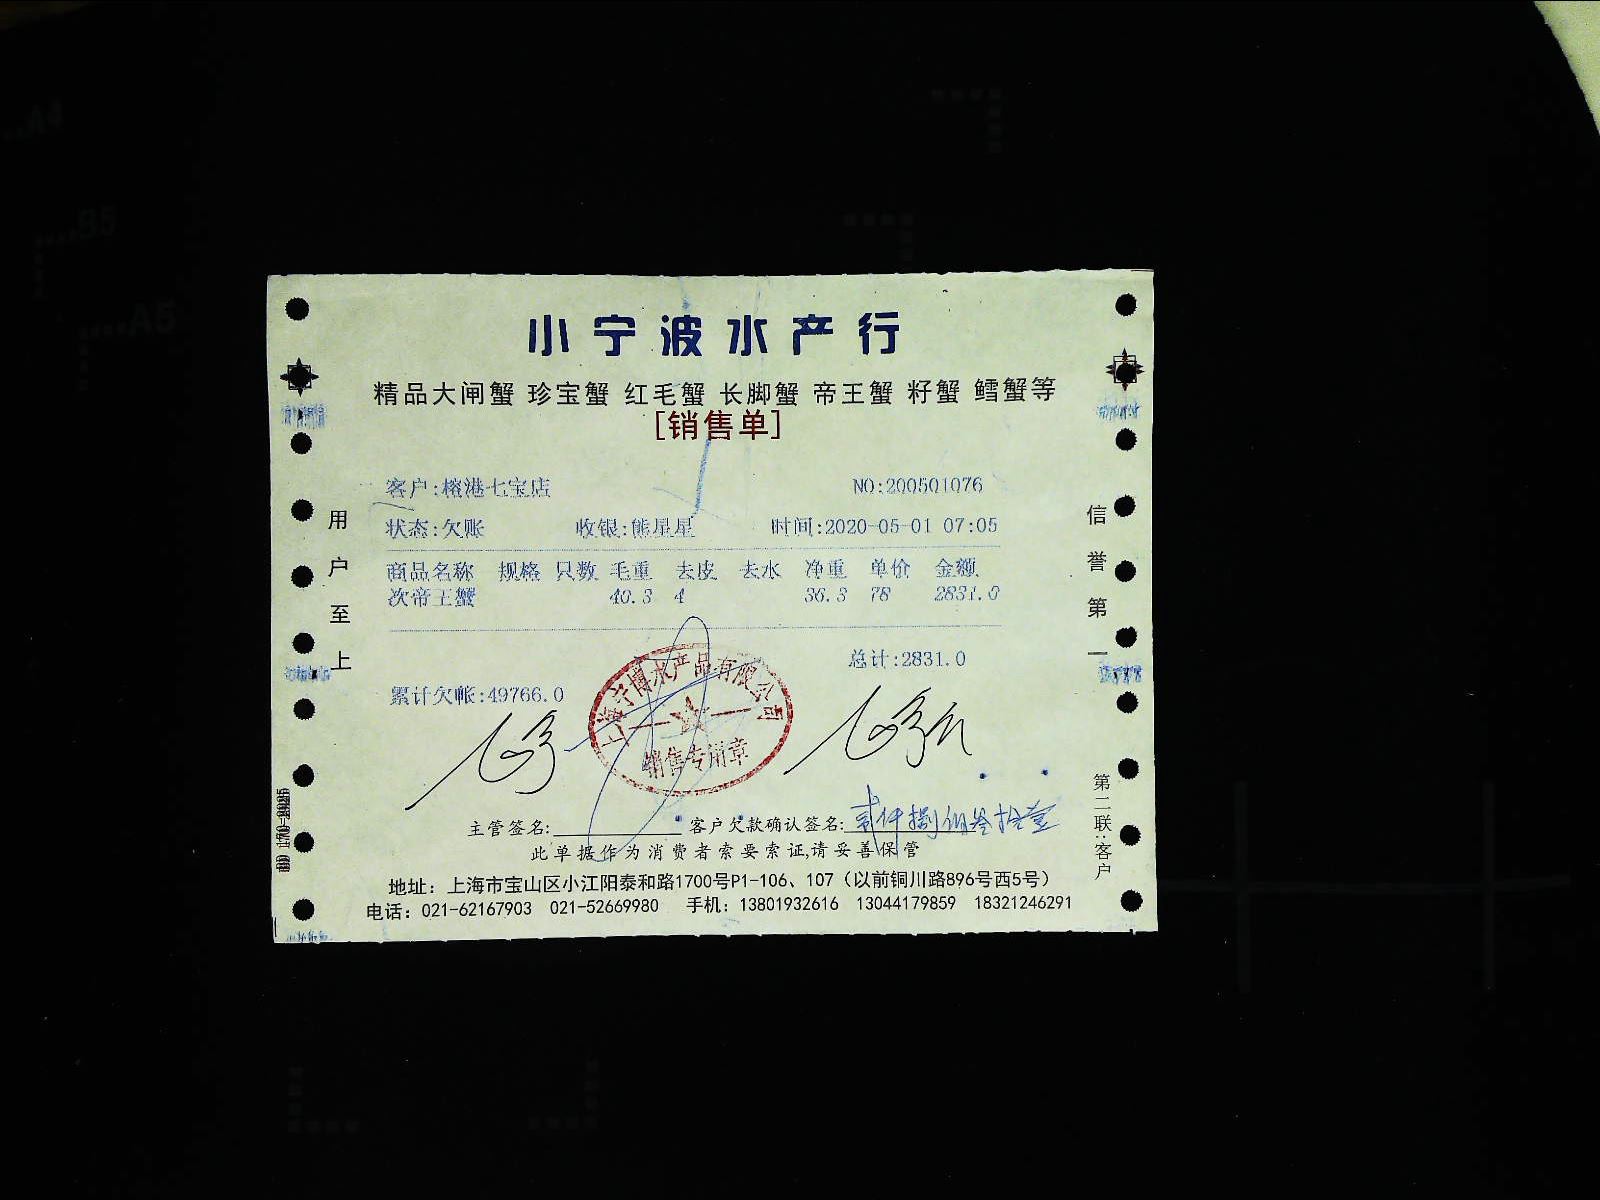 小宁波水产行
精品大闸蟹 珍宝蟹 红毛蟹 长脚蟹 帝王蟹 籽蟹 鳕蟹等
[销售单]
客户:榕港七宝店 NO:200501076
状态:欠账 收银:熊星星 时间:2020-05-01 07:05
商品名称 规格 只数 毛重 去皮 去水 净重 单价 金额
次帝王蟹 40.3 4 36.3 78 2831.0
总计:2831.0
累计欠帐:49766.0
上海宁博水产品有限公司
销售专用章
主管签名: 客户欠款确认签名: 贰仟捌佰叁拾壹
此单据作为消费者索要索证,请妥善保管
地址：上海市宝山区小江阳泰和路1700号P1-106、107（以前铜川路896号西5号）
电话：021-62167903 021-52669980 手机：13801932616 13044179859 18321246291
用户至上
信誉第一
第二联:客户
A5
B5